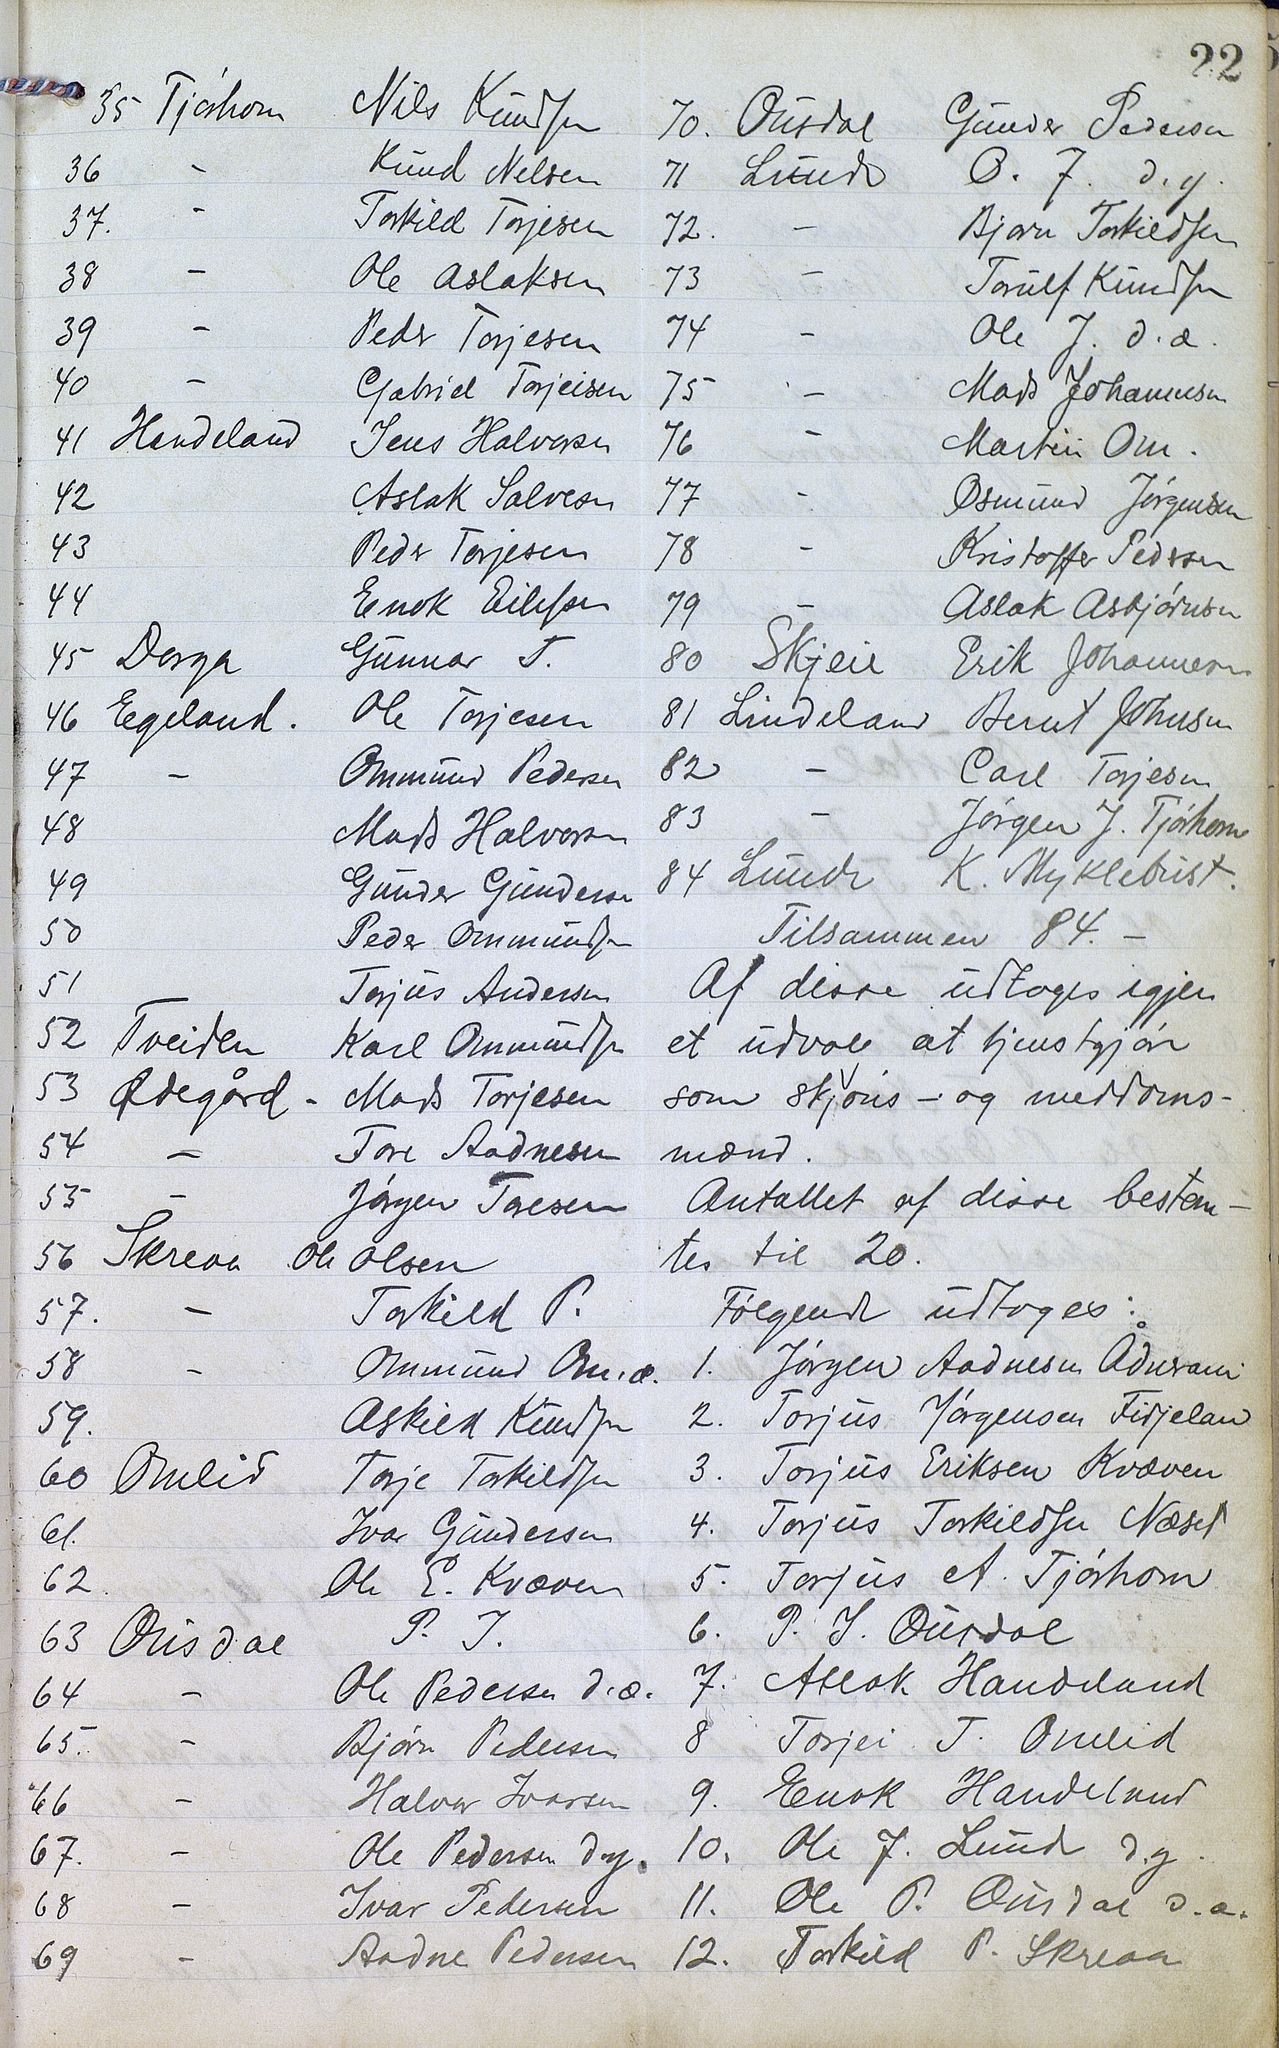 22
35 Tjórhom Nils Knudsen
36 - Knud Nelsen
37. - Torkild Torjesen
38 - Ole Aslaksen
39 - Peder Torjesen
40 - Gabriel Torjeisen
41 Handeland Jens Halvorsen
42 Aslak Salvesen
43 Peder Torjesen
44 Enok Eilifsen
45 Dorga Gunnar T.
46 Egeland. Ole Torjesen
47 - Ommund Pedersen
48 Mads Halvorsen
49 Gunder Gundersen
50 Peder Ommundsen
51 Torjus Andersen
52 Tveiden Karl Ommundsen
53 Ødegård - Mads Torjesen
54 - Tore Aadnesen
55 - Jórgen Toresen
56 Skreaa Ole Olsen
57. - Torkild P.
58 - Ommund Om. æ.
59. Askild Knudsen
60 Omlid Torje Torkildsen
61. Ivar Gundersen
62. Ole E. Kvæven
63 Ousdal P. I.
64 - Ole Pedersen d.æ.
65. - Bjórn Pedersen
66 - Halvor Ivarsen
67. - Ole Pedersen d.y.
68 - Ivar Pedersen
69 - Aadne Pedersen
70. Ousdal Gunder Pedersen
71 Lunde O. J. d.y.
72. - Bjørn Torkildsen
73 - Torulf Knudsen
74 - Ole J. d.æ.
75 - Mads Johannesen
76 - Martin Om.
77 - Osmund Jórgensen
78 - Kristoffer Pedersen
79 - Aslak Asbjórnsen
80 Skjeie Erik Johannesen
81 Lindeland Bernt Johnsen
82 - Carl Torjesen
83 - Jórgen J. Tjórhom
84 Lunde K. Myklebust.
Tilsammen 84. -
Af disse udtoges igjen
et udvalg at tjenstgjóre
som skjóns - og meddoms-
mænd.
Antallet af disse bestem-
tes til 20.
Fólgende udtoges:
1. Jórgen Aadnesen Ådneram
2. Torjus Jórgensen Fidjeland
3. Torjus Eriksen Kvæven
4. Torjus Torkildsen Næset
5. Torjus A. Tjórhom
6. P. I. Ousdal
7. Aslak Handeland
8 Torjei T. Omlid
9. Enok Handeland
10. Ole J. Lunde d.y.
11. Ole P. Ousdal d.æ.
12. Torkild P. Skreaa